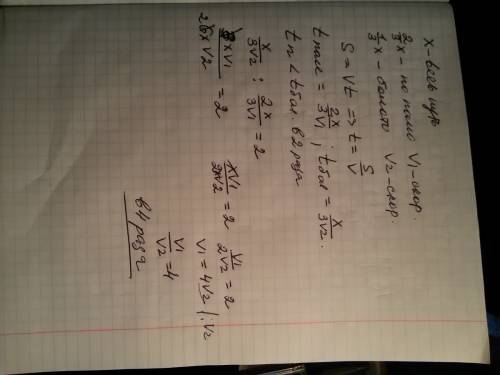 x - весь путь
2/3 x - по полю V1 - скор.
1/3 x - болото V2 - скор.
S = Vt => t = S/V
t поле = 2x/3V1 ; t бол = x/3V2.
t п < t бол. в 2 раза
x/3V2 : 2x/3V1 = 2
xV1/2xV2 = 2
xV1/2xV2 = 2
V1/2V2 = 2
V1 = 4V2 | : V2
V1/V2 = 4
в 4 раза